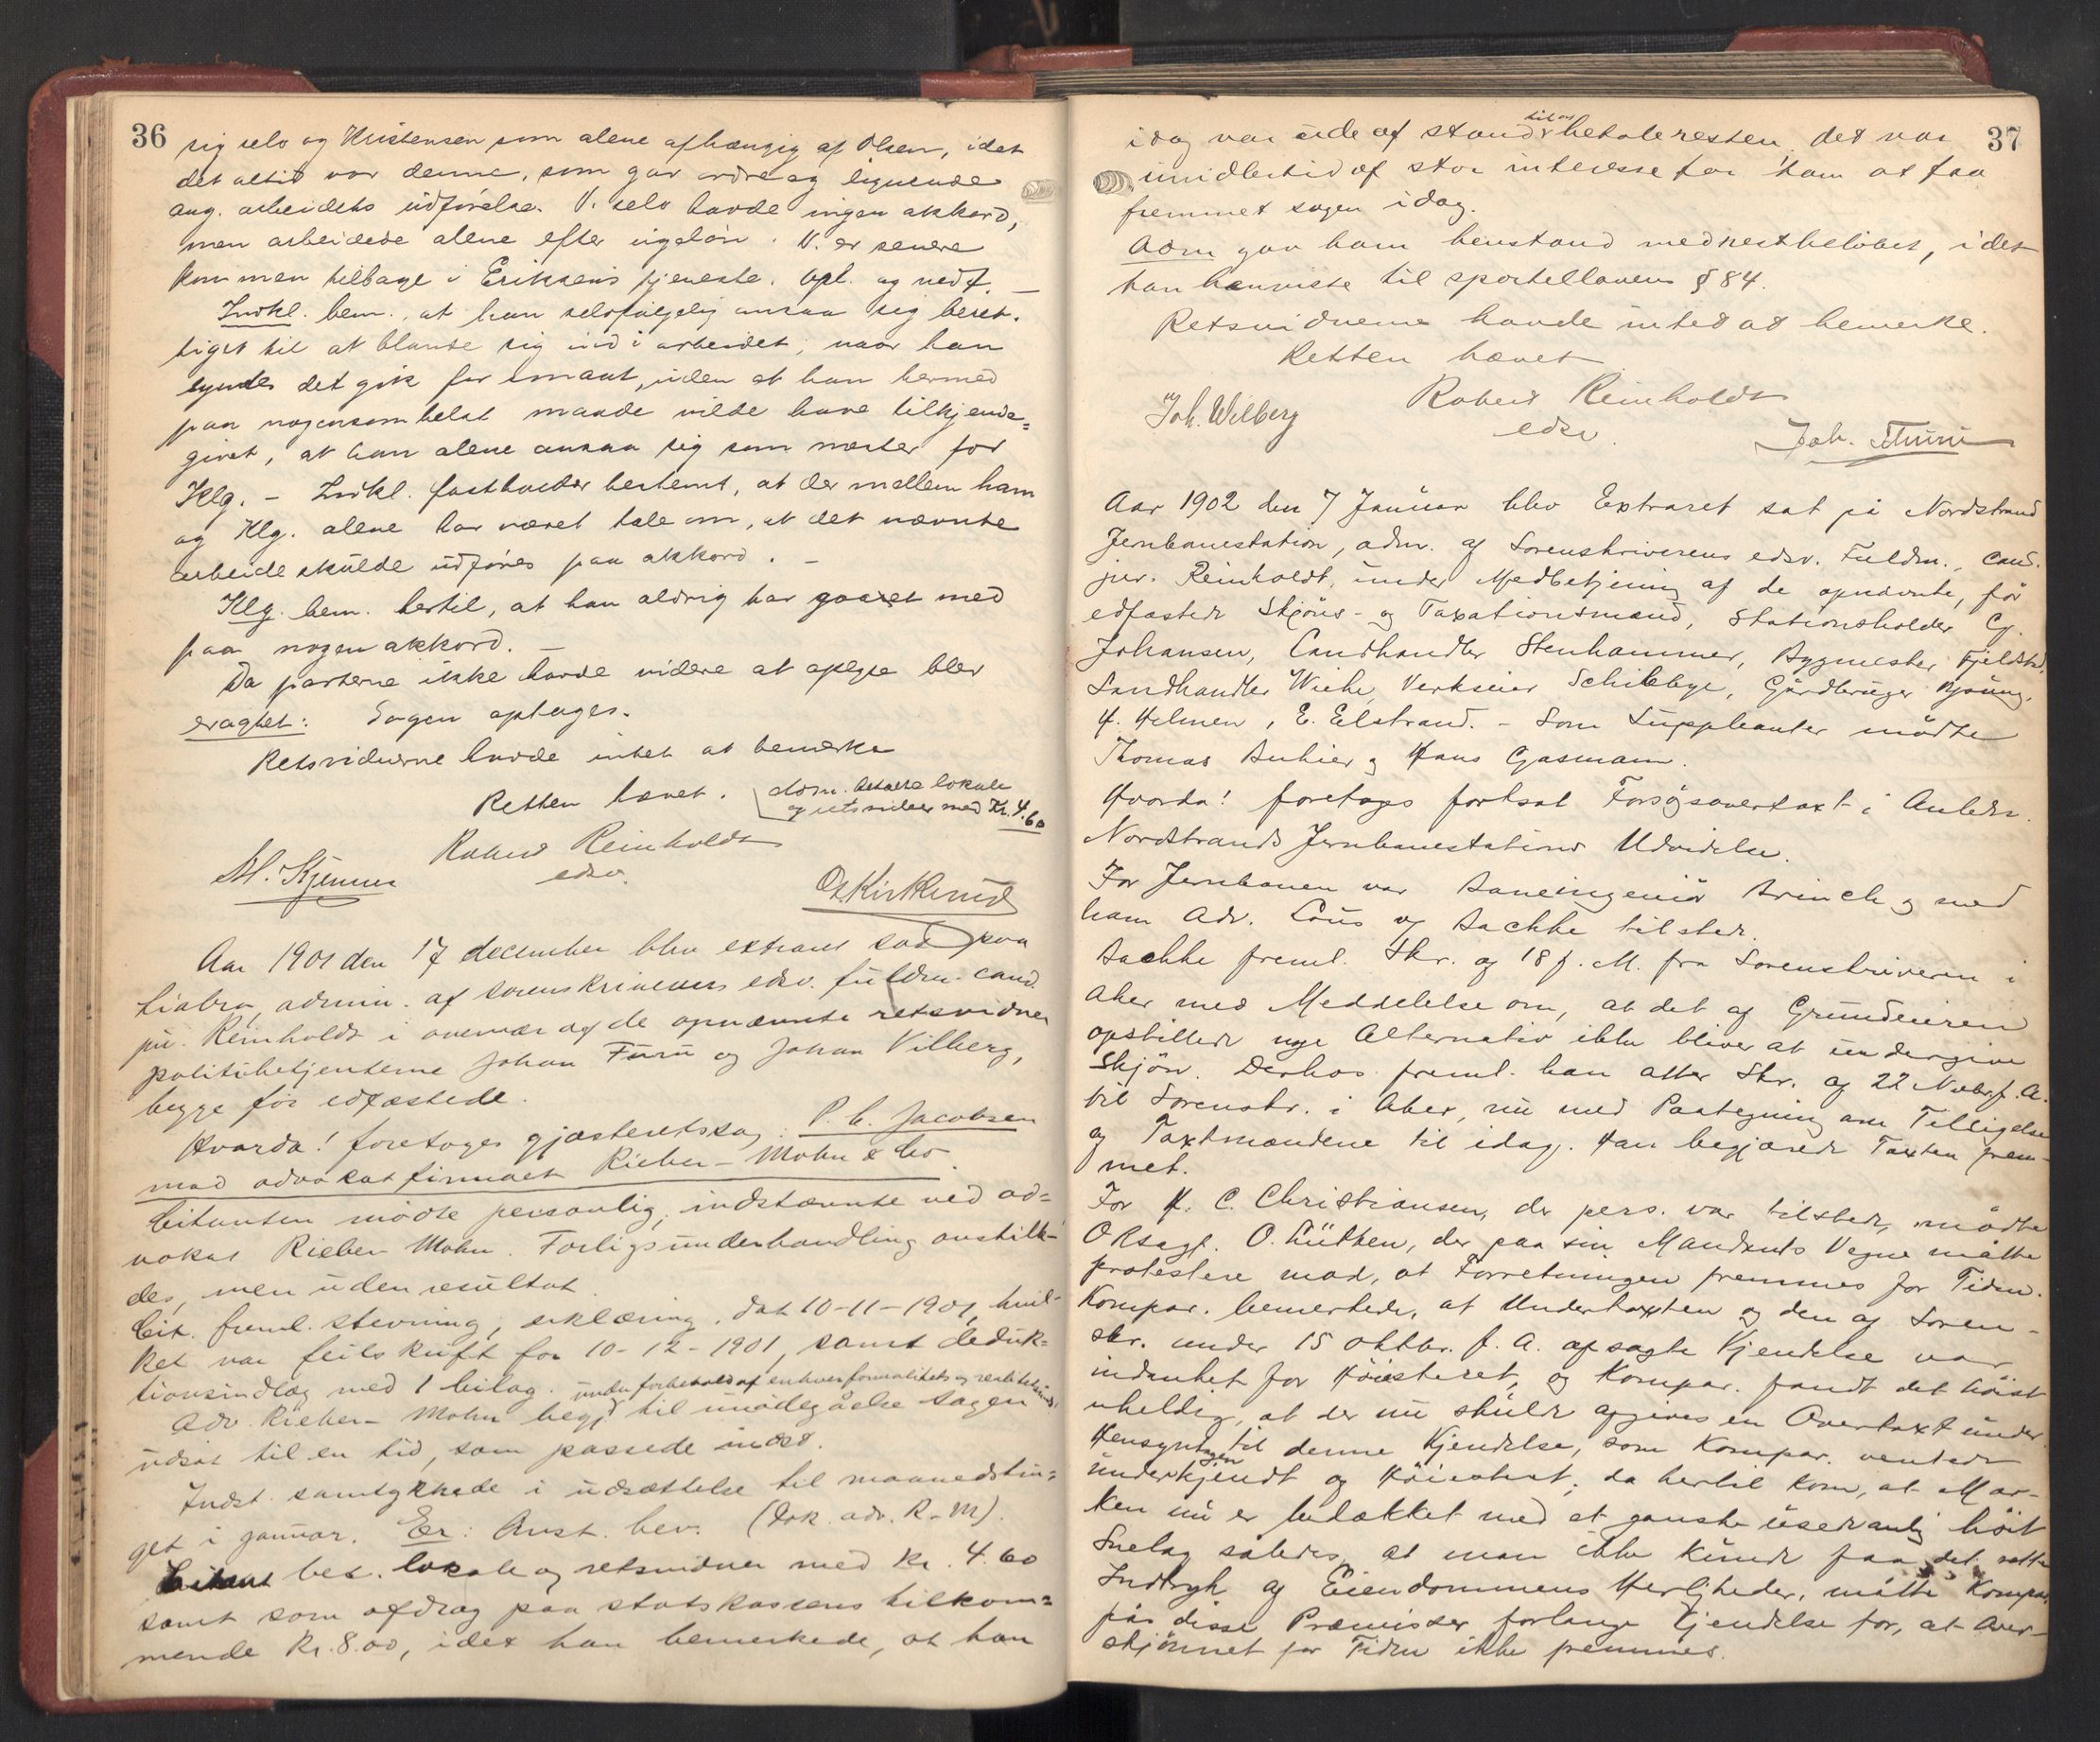 36
sig selv og Kristensen som alene afhængig af Olsen, idet
det altid var denne, som gav ordre og lignende
ang. arbeidets udførelse. V. selv havde ingen akkord,
men arbeidede alene efter ugeløn. V. er senere
kommen tilbage i Eriksens tjeneste. Opl. og vedt. —
Indkl. bem., at han selvfølgelig ansaa sig beret-
tiget til at blande sig ind i arbeidet, naar han
syntes det gik for smaat, uden at han hermed
paa nogensomhelst maade vilde have tilkjende=
givet, at han alene ansaa sig som mester for
Klg. – Indkl. fastholder bestemt, at der mellem ham
og Klg. alene har været tale om, at det nævnte
arbeide skulde udføres paa akkord. –
Klg. bem. hertil, at han aldrig har gaaet med
paa nogen akkord. –
Da parterne ikke havde videre at oplyse blev
eragtet: Sagen optages.
Retsvidnerne havde intet at bemerke
Retten hævet.
Adm. betalte lokale
og retsvidner med Kr. 4.60
Robert Reinholdt
edsv.
M. Kjenner
O. Kirkerud
Aar 1901 den 17 december blev extraret sat paa
Liabro, admin. af sorenskriverens edsv. fuldm. cand.
jur. Reinholdt i overvær af de opnævnte retsvidner
politibetjenterne Johan Furu og Johan Vilberg,
begge før edfæstede.
Hvorda! foretoges gjæsteretssag: P. C. Jacobsen
mod advokatfirmaet Rieber-Mohn & Co.
Citanten mødte personlig, indstævnte ved ad=
vokat Rieber Mohn. Forligsunderhandling anstill-
des, men uden resultat.
Cit. freml. stevning, erklæring, dat 10-11-1901, hvil-
ket var feilskrift for 10-12-1901, samt deduk=
tionsindlæg med 1 bilag.
under forbehold af enhver formalitets og realitetsinds.
Adv. Rieber-Mohn begj. til imødegåelse sagen
udsat til en tid, som passede indst.
Indst. samtykkede i udsættelse til maanedstin=
get i januar. Er: Anst. bev. (Dok. adv. R-M).
Citant bet. lokale og retsvidner med kr. 4.60
samt som afdrag paa statskassens tilkom=
mende Kr. 8.00, idet han bemerkede, at han
37
idag var ude af stand til at betale resten, det var
imidlertid af stor interesse for ham at faa
fremmet sagen idag.
Adm gav ham henstand med restbeløbet, idet
han henviste til sportellovens § 84.
Retsvidnerne havde intet at bemerke.
Retten hævet
Robert Reinholdt
edsv.
Joh. Wilberg
Joh. Furu
Aar 1902 den 7 Januar blev Extraret sat på Nordstrand
Jernbanestation, adm. af Sorenskriverens edsv. Fuldm., cand.
jur. Reinholdt, under Medbetjening af de opnævnte, før
edfæstede Skjøns- og Taxationsmænd, Stationsholder Cg.
Johansen, Landhandler Stenhammer, Bygmester Fjeldstad,
Landhandler Wiehe, Verkseier Schibbye, Gårdbruger
H. Holmen, E. Elstrand. – Som Suppleanter mødte
Thomas og Hans Gasmann.
Hvorda! foretages fortsat Forsøgsovertaxt i Anledn.
Nordstrands Jernbanestations Udvidelse.
For Jernbanen var Baneingeniør Brinch og med
ham Adv. Cous og Bachke tilstede.
Bachke freml. Skr. af 18 f. M. fra Sorenskriveren i
Aker med Meddelelse om, at det af Grundeieren
opstillede nye Alternativ ikke bliver at undergive
Skjøn. Derhos freml. han atter Skr. af 22 Novbr. f. A.
til Sorenskr. i Aker, nu med Paategning om Tilsigelse
af Taxtmændene til idag. Han begjærede Taxten frem-
met.
For H. C. Christiansen, der pers. var tilstede, mødte
ORsagf. O. Lütken, der paa sin Mandants Vegne måtte
protestere mod, at Forretningen fremmes for Tiden.
Kompar. bemerkede, at Undertaxten og den af Soren-
skr. under 15 oktbr. f. A. afsagte Kjendelse var
indanket for Høiesteret, og Kompar. fandt det høist
uheldig, at der nu skulde afgives en Overtaxt under
Hensyntagen til denne Kjendelse, som Kompar. ventede
underkjendt af Høiesteret; da hertil kom, at Mar-
ken nu er bedækket med et ganske usedvanlig høit
Snelag således, at man ikke kunde faa det rette
Indtryk af Eiendommens Herligheder, måtte Kompar.
på disse Præmisser forlange Kjendelse for, at Over-
skjønnet for Tiden ikke fremmes.